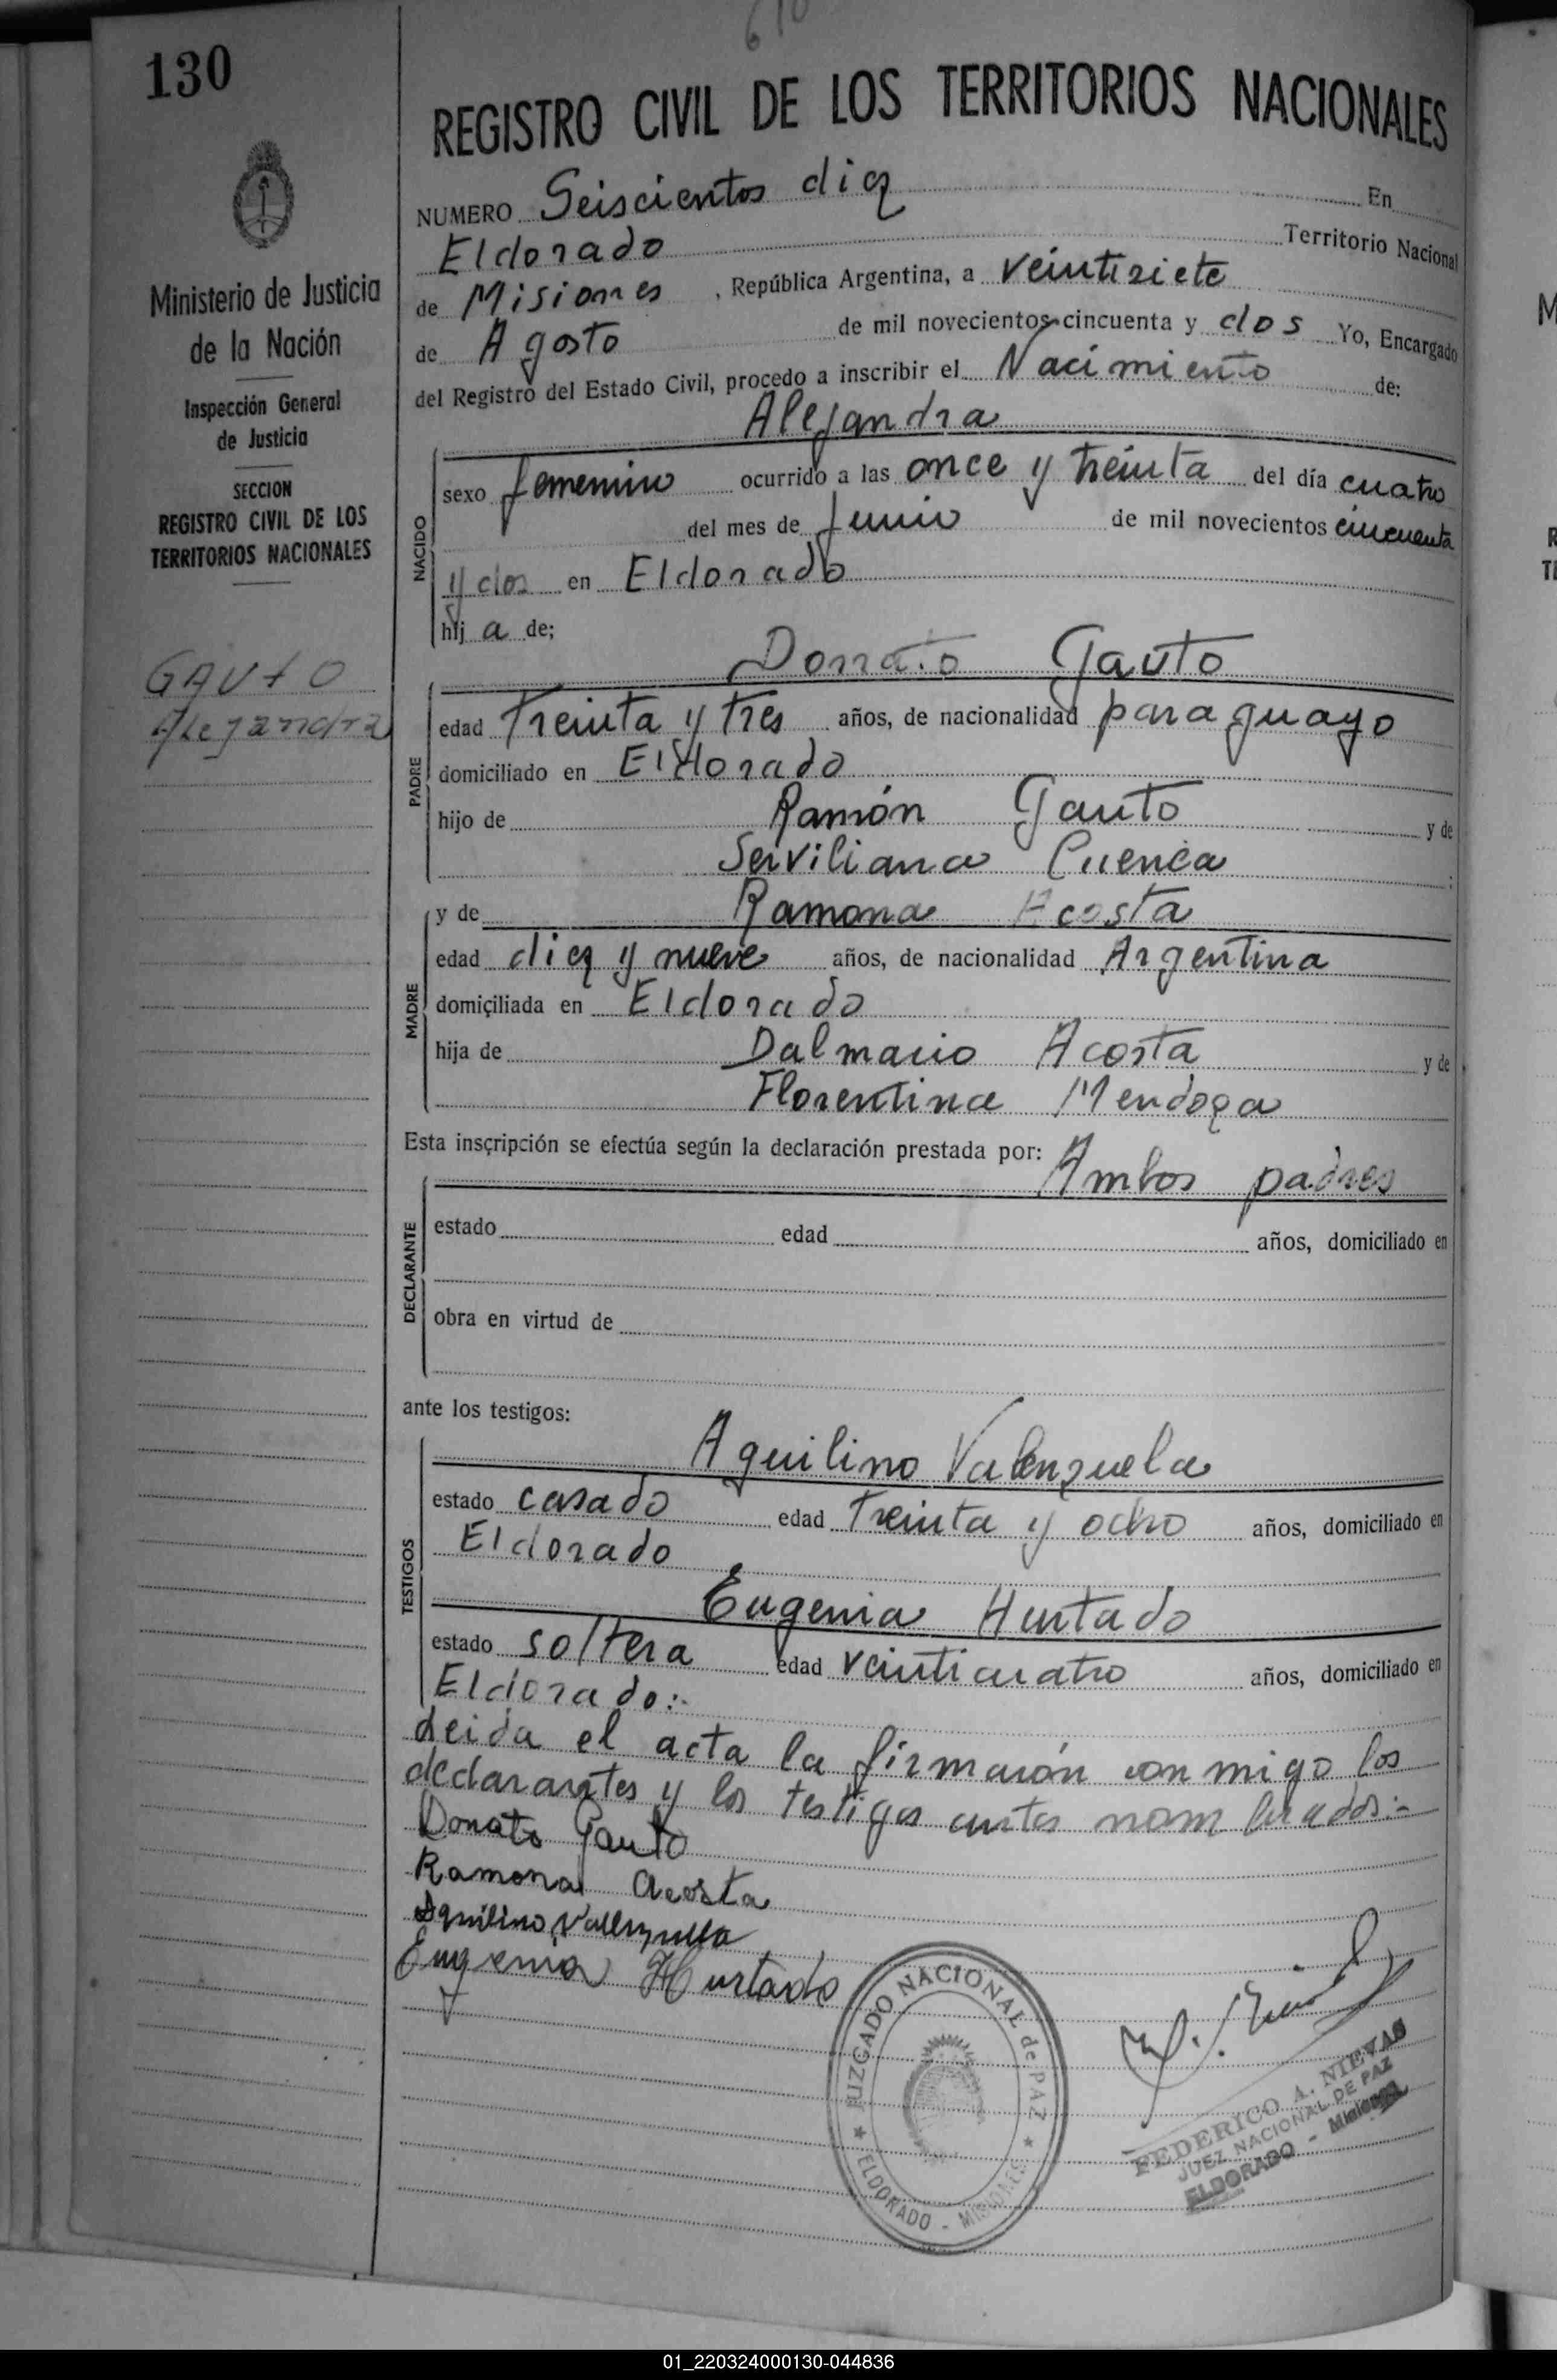 610
130
REGISTRO CIVIL DE LOS TERRITORIOS NACIONALES
Ministerio de Justicia
de la Nación
Inspección General
de Justicia
SECCION
REGISTRO CIVIL DE LOS
TERRITORIOS NACIONALES
GAUTO
Alejandra
NUMERO Seiscientos diez En
Eldorado Territorio Nacional
de Misiones , República Argentina, a veintisiete
de Agosto de mil novecientos cincuenta y dos Yo, Encargado
del Registro del Estado Civil, procedo a inscribir el Nacimiento de:
Alejandra
NACIDO
sexo femenino ocurrido a las once y treinta del día cuatro
del mes de Junio de mil novecientos cincuenta
y dos en Eldorado
hij a de;
Donato Gauto
PADRE
edad treinta y tres años, de nacionalidad paraguayo
domiciliado en Eldorado
hijo de Ramón Gauto y de
Serviliana Cuenca
MADRE
y de Ramona Acosta
edad diez y nueve años, de nacionalidad Argentina
domiciliada en Eldorado
hija de Dalmacio Acosta y de
Florentina Mendoza
Esta inscripción se efectúa según la declaración prestada por: Ambos padres
DECLARANTE
estado edad años, domiciliado en
obra en virtud de
ante los testigos:
Aquilino Valenzuela
TESTIGOS
estado casado edad treinta y ocho años, domiciliado en
Eldorado
Eugenia Hurtado
estado soltera edad veinticuatro años, domiciliado en
Eldorado:-
Leida el acta la firmarón conmigo los
declarantes y los testigos antes nombrados:-
Donato Gauto
Ramona Acosta
Aquilino Vallenzuella
Eugenia Hurtado
JUZGADO NACIONAL de PAZ
ELDORADO - MISIONES
FEDERICO A. NIEVAS
JUEZ NACIONAL DE PAZ
ELDORADO - Misiones
01_220324000130-044836